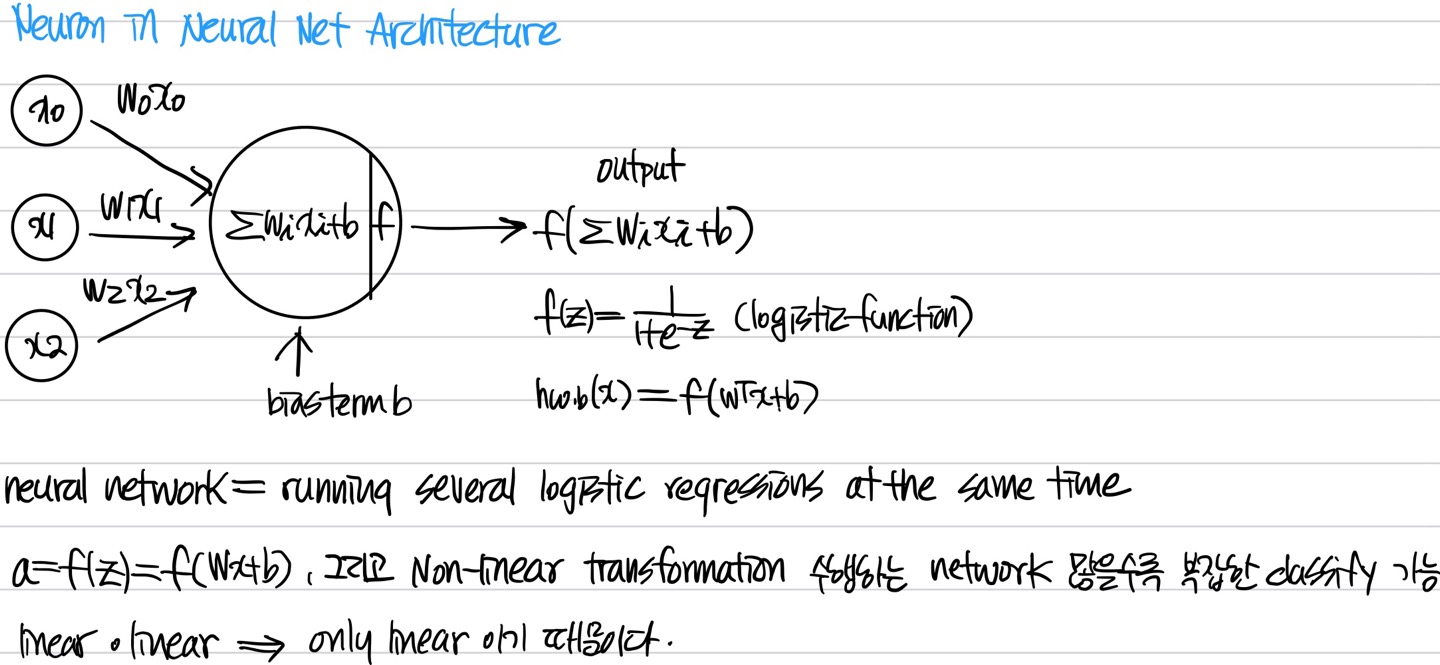 Neuron in Neural Net Architecture
x0
W0x0
x1
W1x1
x2
W2x2
ΣWixi+b
f
bias term b
output
f(ΣWixi+b)
f(z)=1/1+e-z (logistic function)
hw.b(x)=f(WTx+b)
neural network = running several logistic regressions at the same time
a=f(z)=f(Wx+b), 그리고 Non-linear transformation 수행하는 network 많을수록 복잡한 classify 가능
linear • linear ⇒ only linear 이기 때문이다.